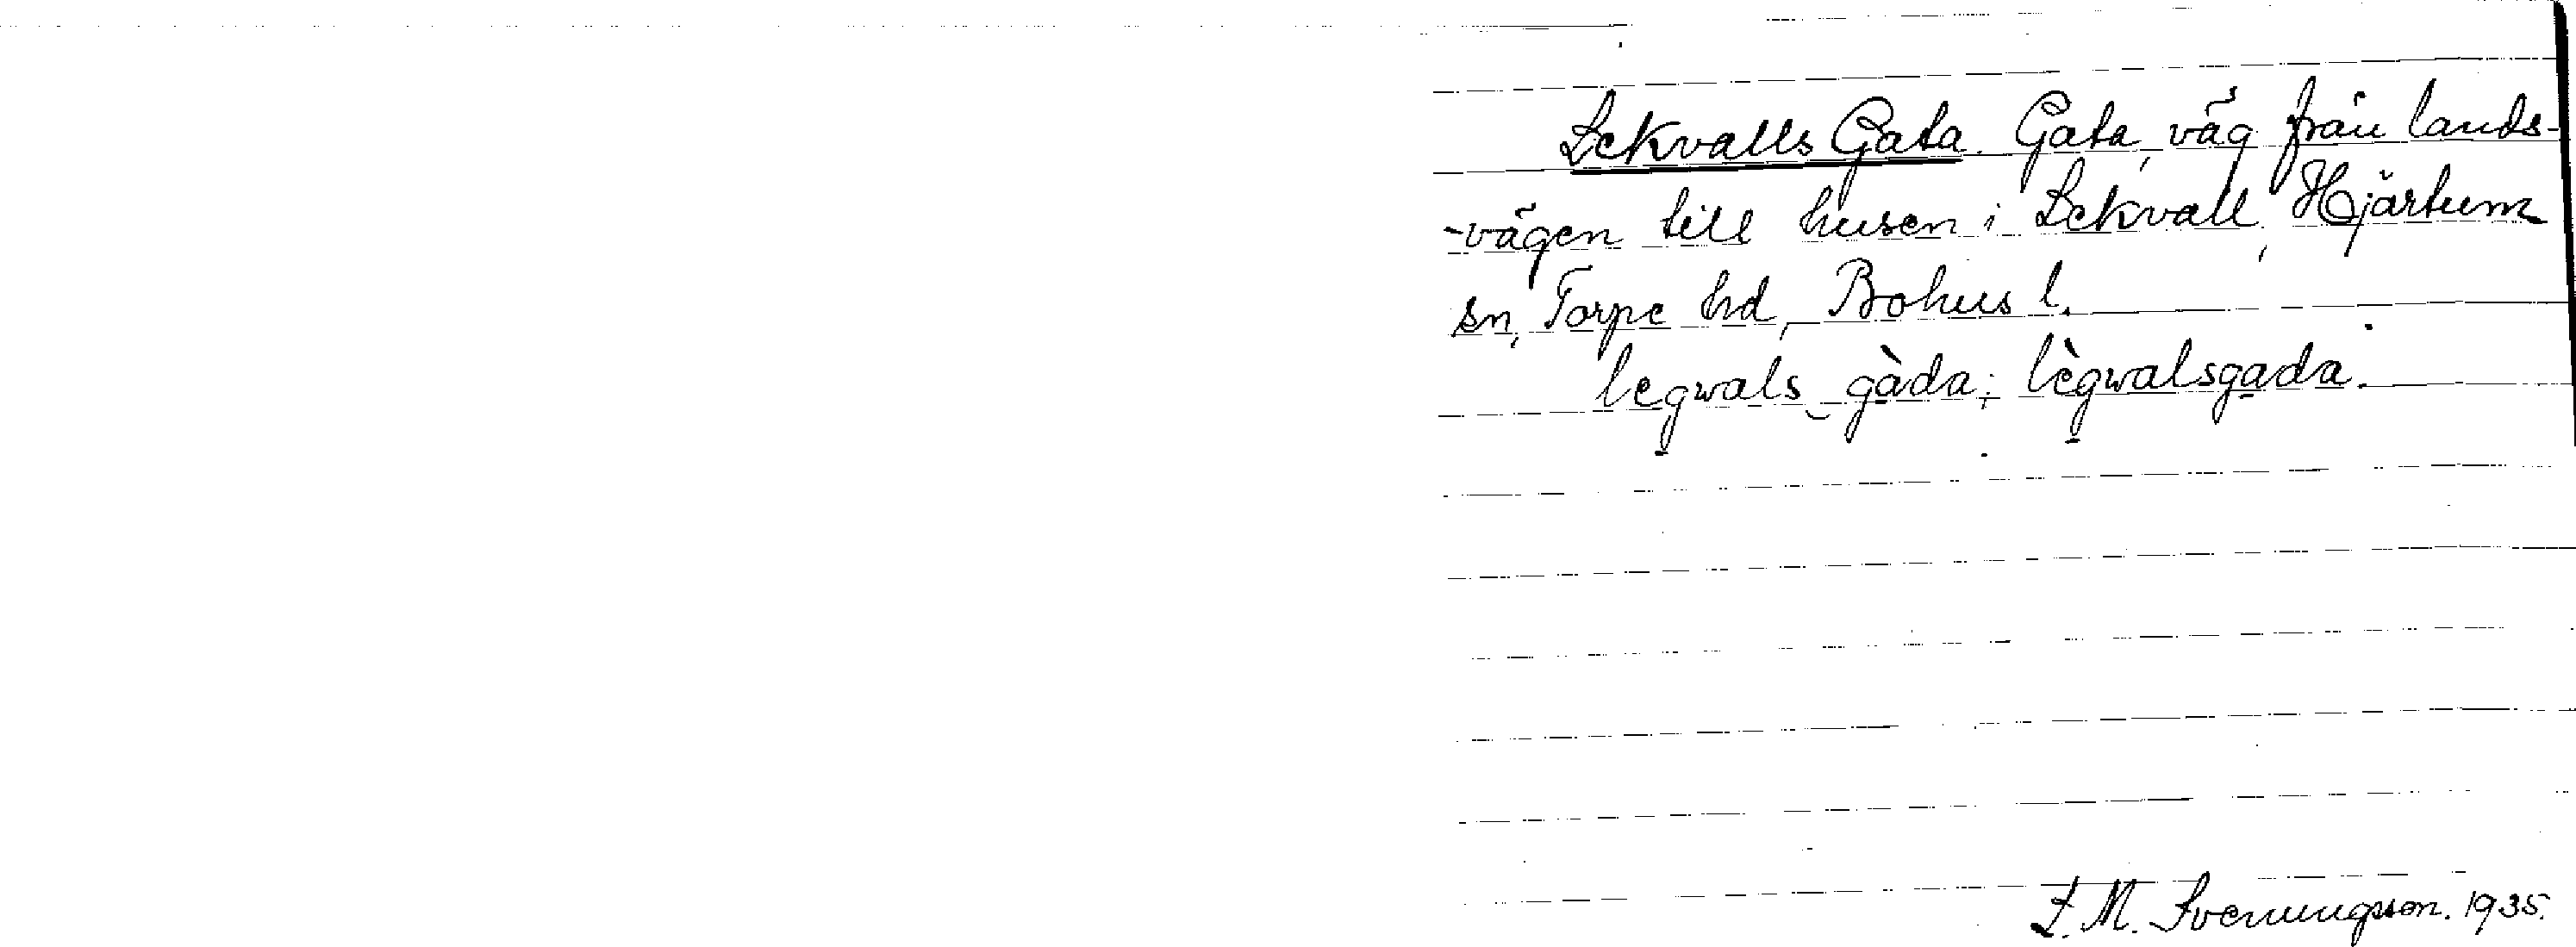 Lekvalls Gata. Gata, väg från lands-
-vägen till husen i Lekvall, Hjärtum
sn, Torpe hd, Bohus l.
legwals gàda; lègwalsgada.
L. M. Svenungsson. 1935.